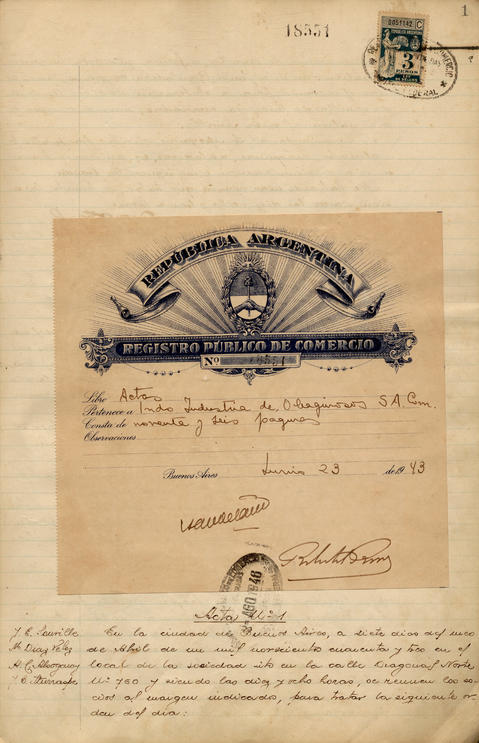 1
18551
0051142 C
REPUBLICA ARGENTINA
3
PESOS
COMERCIO
REPÚBLICA ARGENTINA
REGISTRO PÚBLICO DE COMERCIO
Nº 18551
Libro Actas
Pertenece a Indo Industria de Oleaginosos S.A. Com.
Consta de noventa y seis paginas
Observaciones
Buenos Aires Junio 23 de 1943
AGO 1946
Acta Nº 1
En la ciudad de Buenos Aires, a siete dias del mes
M. Diaz Velez de Abril de un mil novecientos cuarenta y tres en el
local de la sociedad sito en la calle Diagonal Norte
J. C. Iturraspe Nº 760 y siendo las diez y ocho horas, se reunen los so-
cios al margen indicados, para tratar la siguiente or-
den del dia: